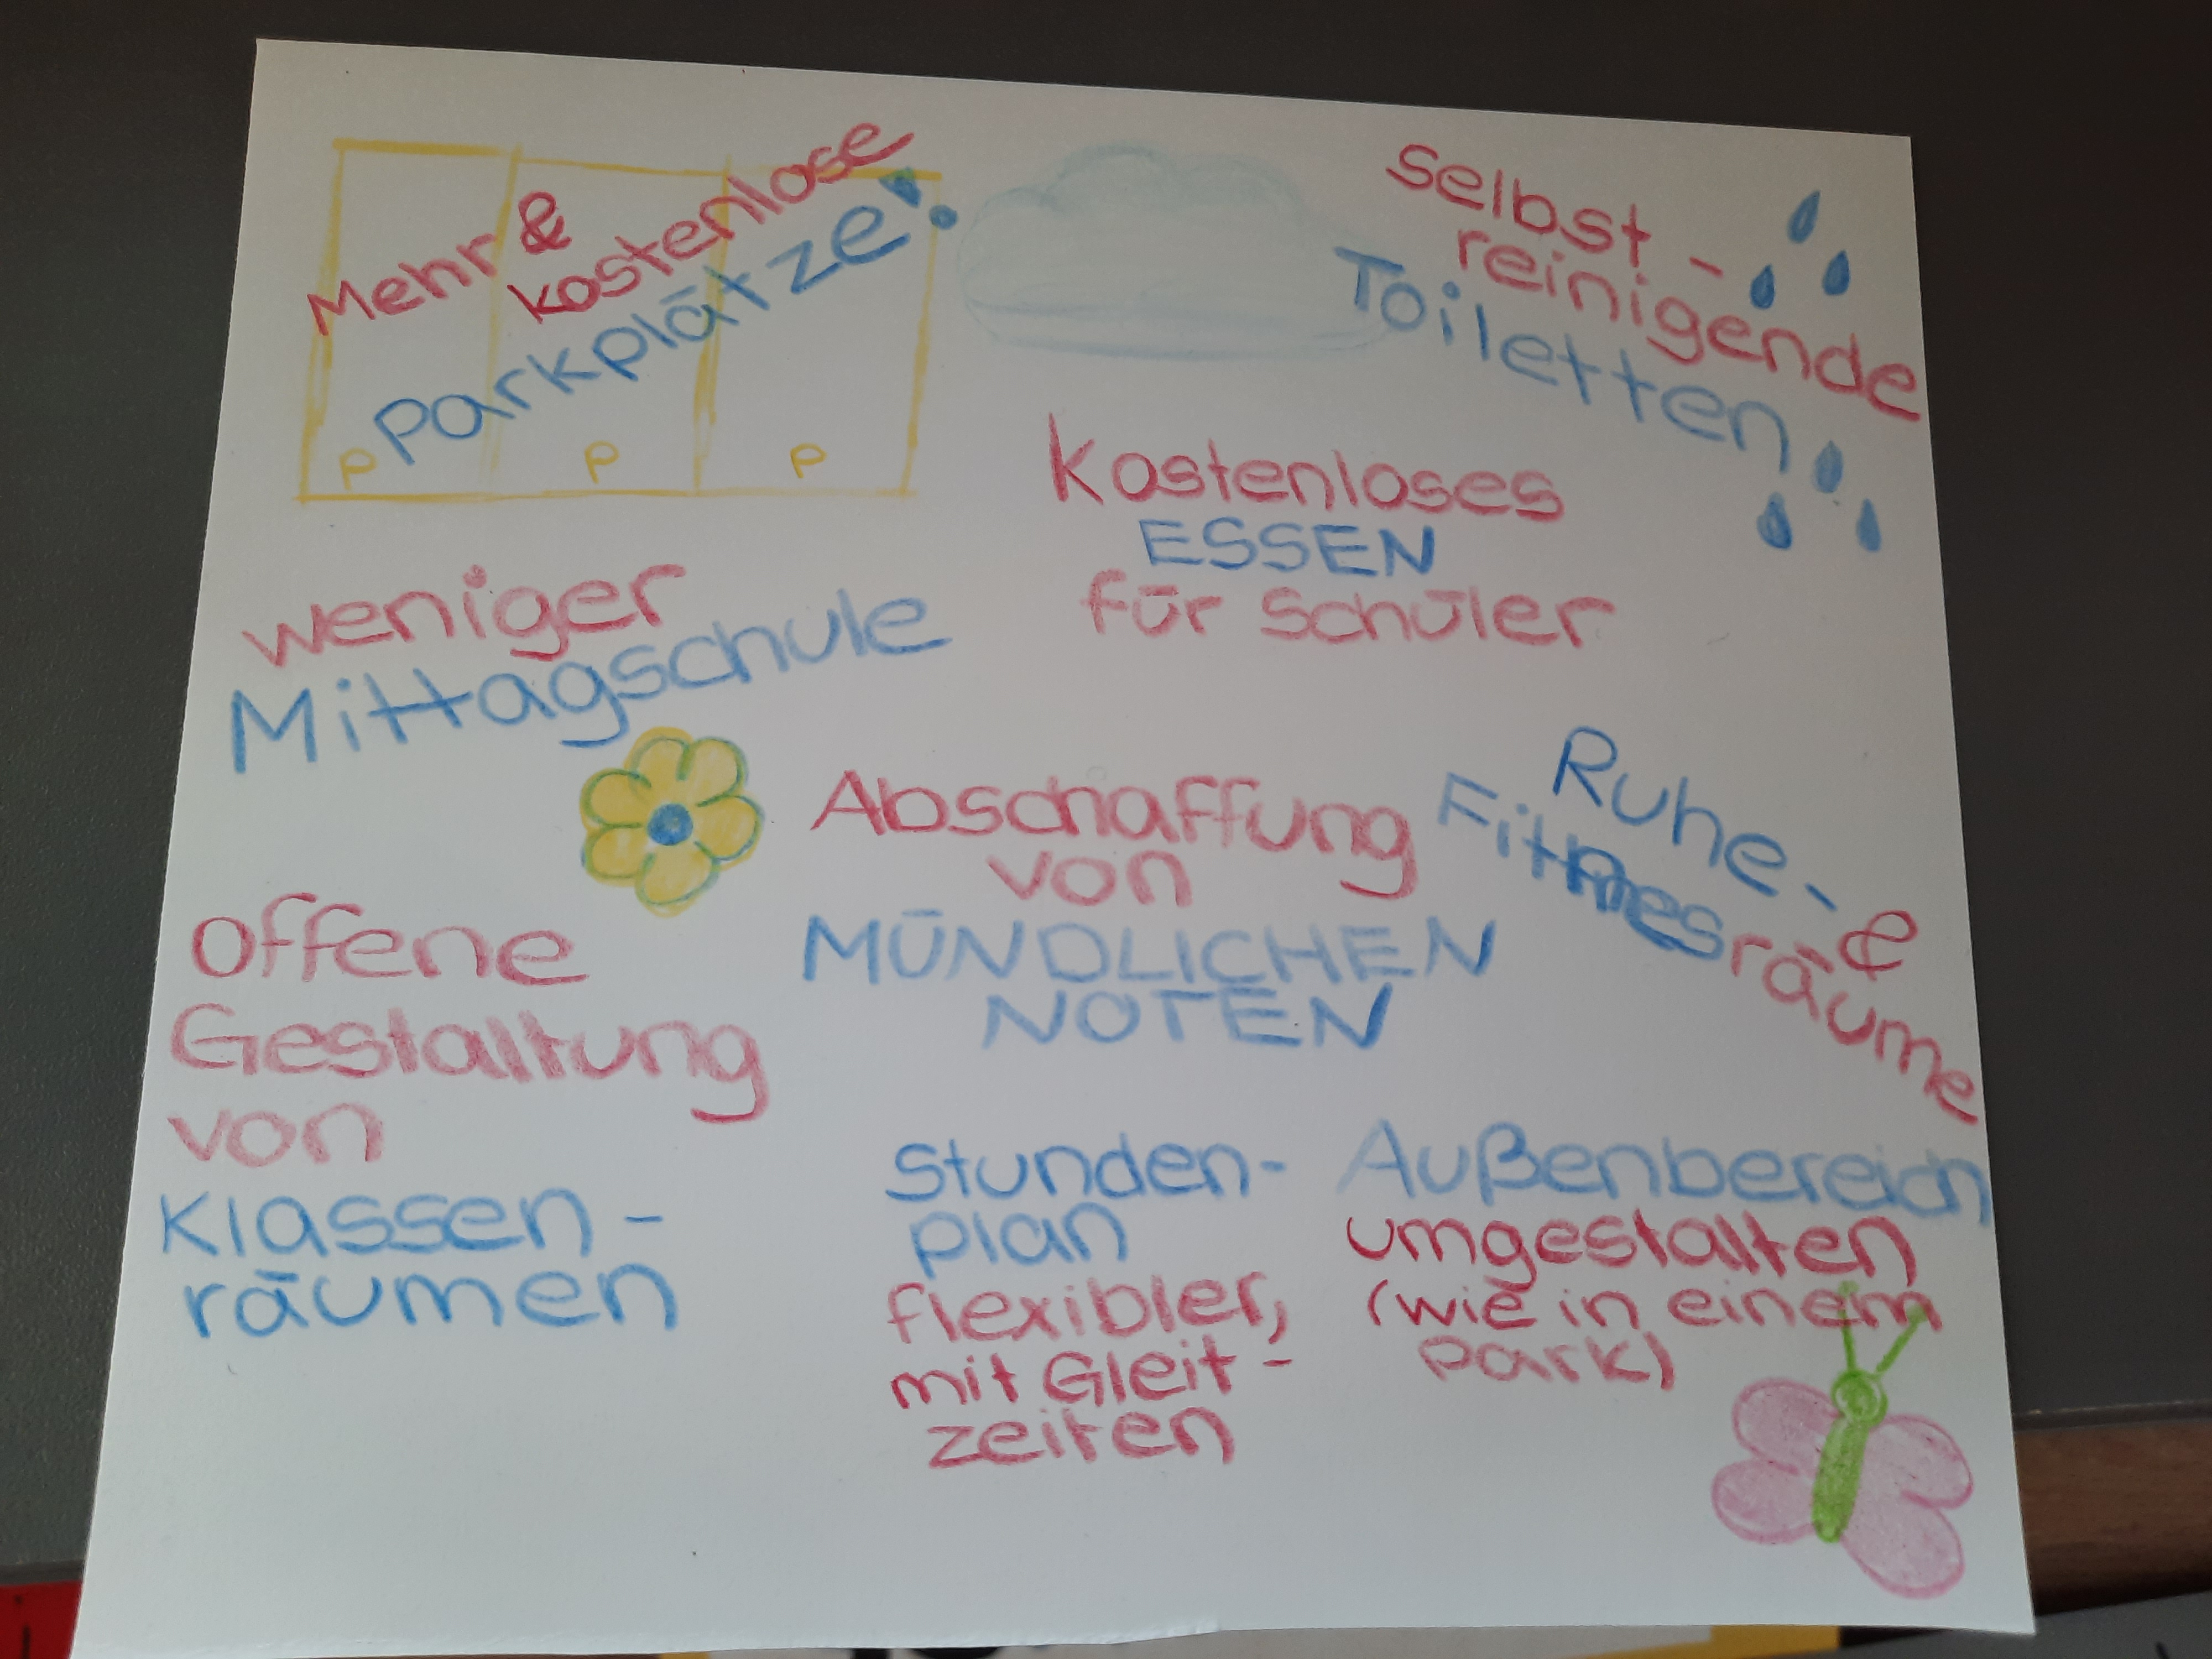 Mehr &
kostenlose
Parkplätze!
P P P
selbst-
reinigende
Toiletten
Kostenloses
ESSEN
für Schüler
weniger
Mittagschule
Abschaffung
von
MÜNDLICHEN
NOTEN
Ruhe- &
Fitnesräume
Offene
Gestaltung
von
Klassen-
räumen
Stunden-
plan
flexibler,
mit Gleit-
zeiten
Außenbereich
umgestalten
(wie in einem
Park)